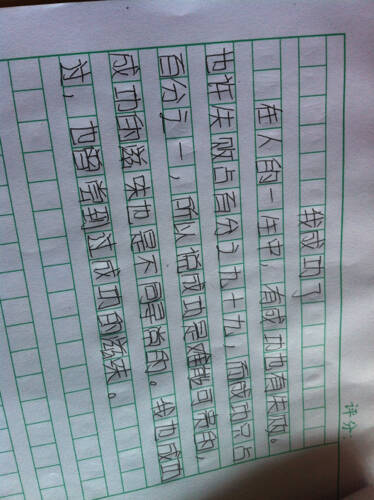 评分:
我成功了
在人的一生中，有成功也有失败。
也许失败占百分之九十九，而成功只占
百分之一，所以成功是难能可贵的，
成功的滋味也是不可是尝的。我也成功
过，也曾尝到过成功的滋味。